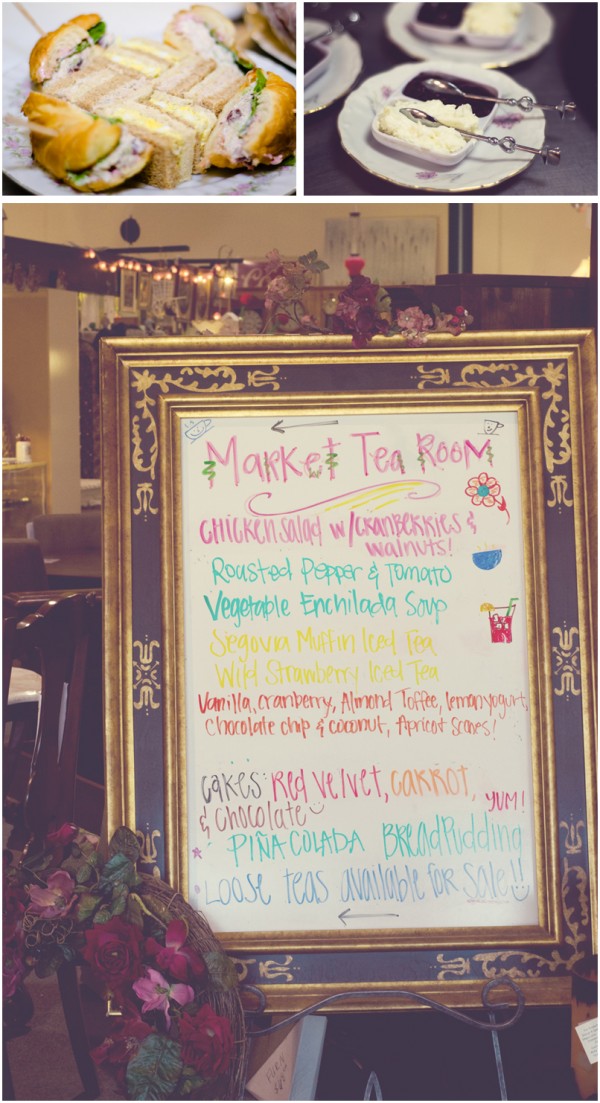 Market Tea Room
Chicken salad w/cranberries &
walnuts!
Roasted Pepper & Tomato
Vegetable Enchilada Soup
Segovia Muffin Iced Tea
Wild Strawberry Iced Tea
Vanilla, cranberry, Almond Toffee, lemon yogurt,
Chocolate chip & coconut, Apricot Scones!
Cakes: Red Velvet, CARROT,
& Chocolate YUM!
PIÑA COLADA Bread Pudding
Loose teas available for Sale!!